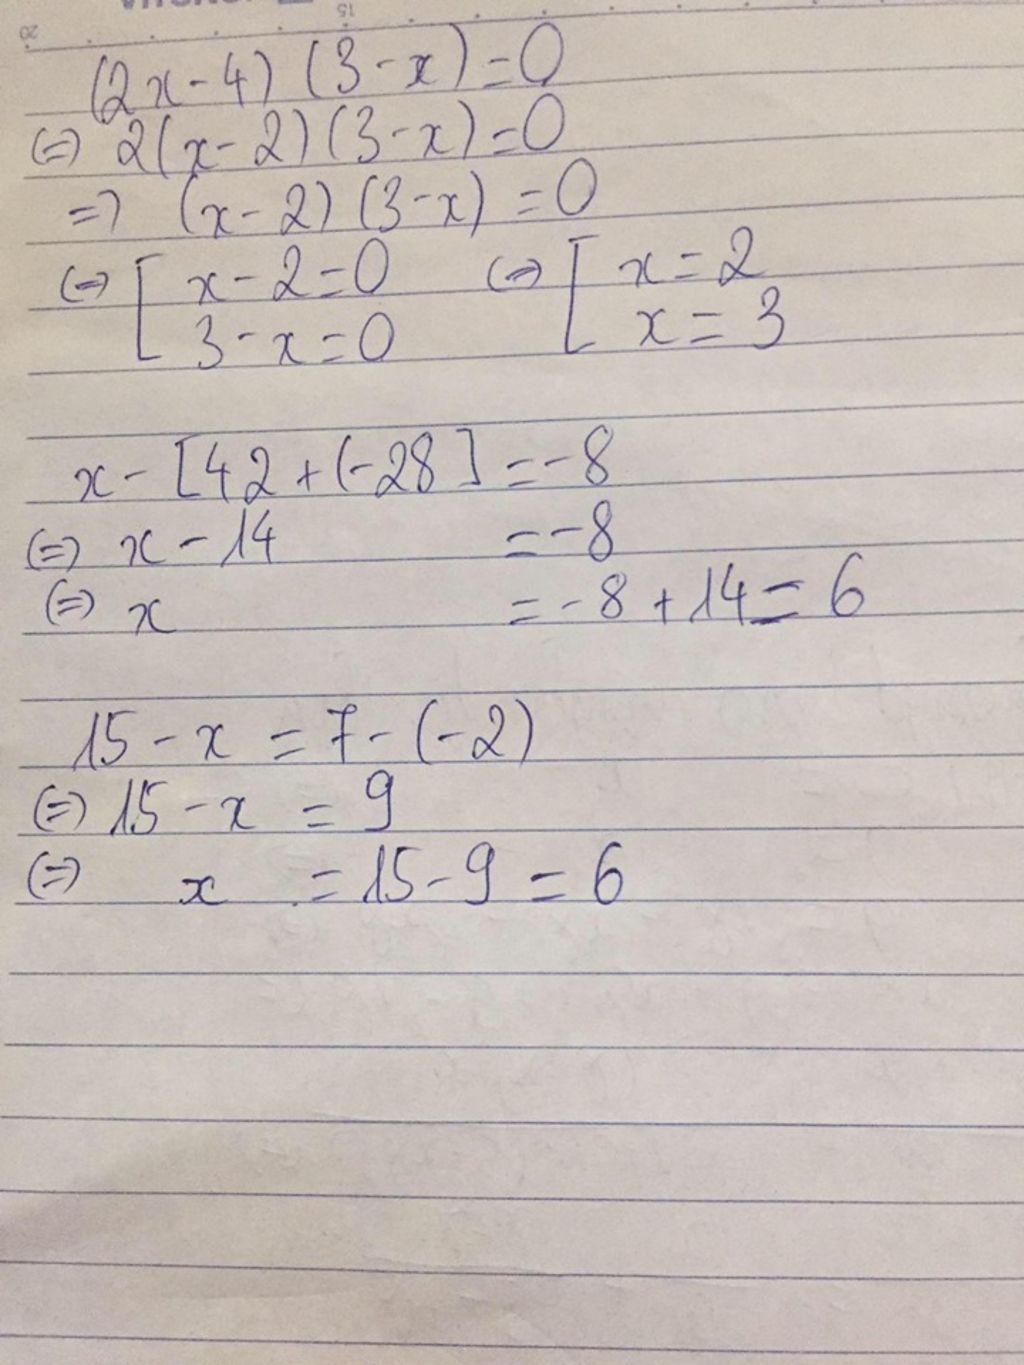 20
15
(2x-4) (3-x)=0
(=) 2(x-2)(3-x)=0
=) (x-2) (3-x) =0
(=) [ x-2=0 (=) [ x=2
3-x=0 x=3
x-[42+(-28] =-8
(=) x-14 =-8
(=) x =-8+14=6
15-x =7-(-2)
(=) 15-x =9
(=) x =15-9=6